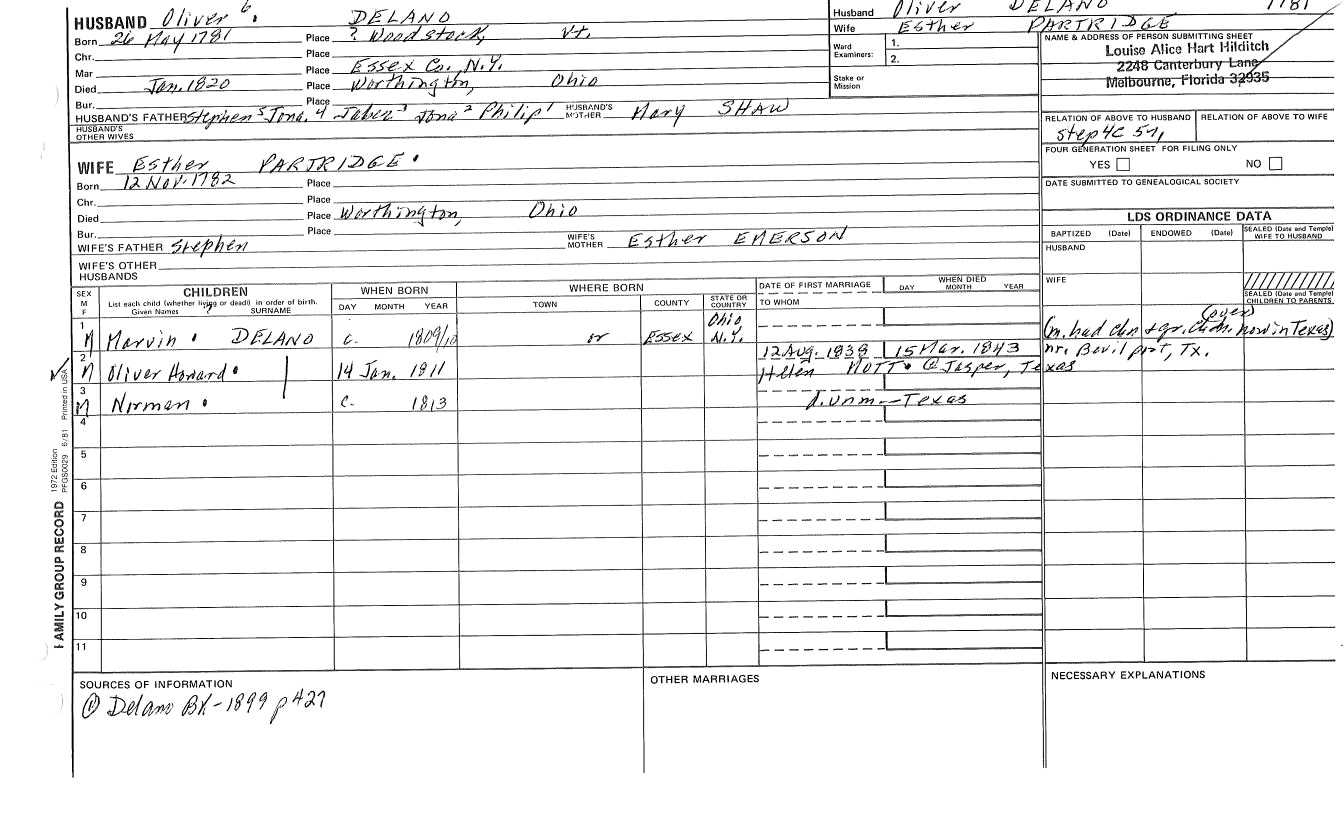 HUSBAND Oliver 6. DELANO
Born 26 May 1781 Place ? Woodstock, Vt.
Chr. Place
Mar Place Essex Co. N.Y.
Died Jan. 1820 Place Worthington, Ohio
Bur. Place
HUSBAND'S FATHER Stephen 5 Jona. 4 Jabez 3 Jona 2 Philip 1 HUSBAND'S MOTHER Mary SHAW
HUSBAND'S OTHER WIVES
WIFE Esther PARTRIDGE.
Born 12 Nov. 1782 Place
Chr. Place
Died Place Worthington, Ohio
Bur. Place
WIFE'S FATHER Stephen WIFE'S MOTHER Esther EMERSON
WIFE'S OTHER HUSBANDS
Husband Oliver DELANO 1781
Wife Esther PARTRIDGE
Ward Examiners: 1.
2.
Stake or Mission
NAME & ADDRESS OF PERSON SUBMITTING SHEET
Louise Alice Hart Hilditch
2248 Canterbury Lane
Melbourne, Florida 32935
RELATION OF ABOVE TO HUSBAND RELATION OF ABOVE TO WIFE
step 4C
FOUR GENERATION SHEET FOR FILING ONLY
YES NO
DATE SUBMITTED TO GENEALOGICAL SOCIETY
LDS ORDINANCE DATA
BAPTIZED (Date) ENDOWED (Date) SEALED (Date and Temple) WIFE TO HUSBAND
HUSBAND
WIFE
SEALED (Date and Temple) CHILDREN TO PARENTS
SEX M F
CHILDREN
List each child (whether living or dead) in order of birth.
Given Names SURNAME
WHEN BORN
DAY MONTH YEAR
WHERE BORN
TOWN COUNTY STATE OR COUNTRY
DATE OF FIRST MARRIAGE
TO WHOM
WHEN DIED
DAY MONTH YEAR
1 M Marvin . DELANO c. 1809/10 or Essex Ohio N.Y. (over)
(m. had chn & gr. chdn. now in Texas)
2 M Oliver Howard . 14 Jan. 1811 12 Aug. 1838 15 Mar. 1843 nr. Bevilport, Tx.
Helen MOTT. @ Jasper, Texas
3 M Norman . c. 1813 d. unm. - Texas
4
5
6
7
8
9
10
11
SOURCES OF INFORMATION
① Delano BK - 1899 p 427
OTHER MARRIAGES
NECESSARY EXPLANATIONS
FAMILY GROUP RECORD
1972 Edition
PFGS0029 6/81 Printed in USA